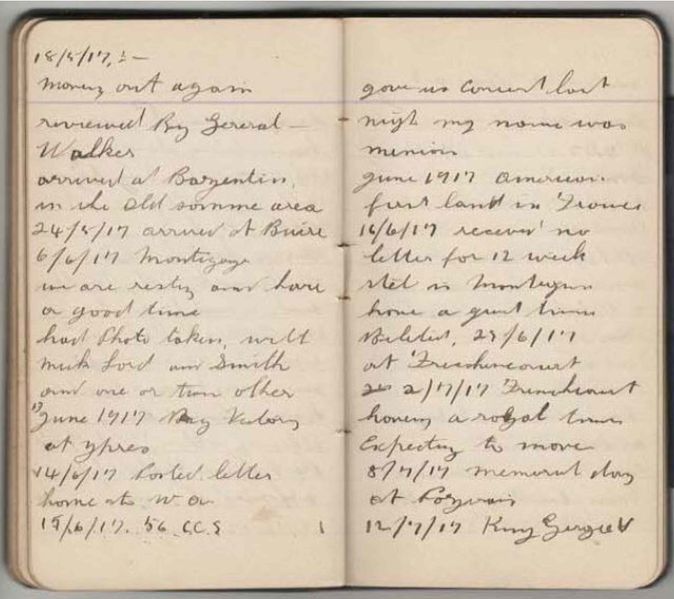 18/5/17, :-
moving out again
reviewed By General -
Walker
arrived at Bazentin,
in the old somme area
24/5/17 arrived at Buire
6/6/17
we are resting and have
a good time
had Photo taken, with
mick Lord and Smith
and one or two other
June 1917 Victory
at ypres
14/6/17 Posted letter
home to W.A.
15/6/17. 56 C.C.S
gave us concert last
night my name was
June 1917 american
first land in France
16/6/17 receiver no
letter for 12 week
still in
have a time
29/6/17
at Frechencourt
2/7/17
having a royal time
Expecting to move
8/7/17 memorial day
at
12/7/17 King George V